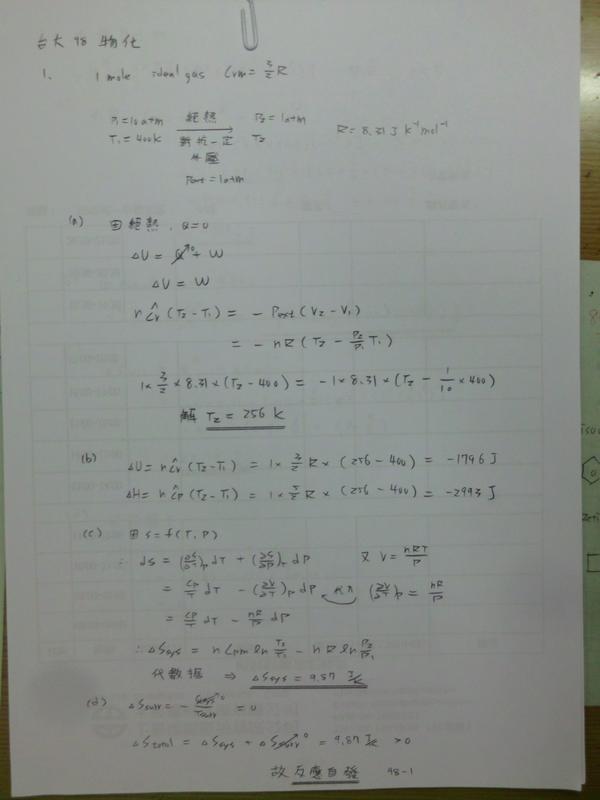 台大 98 物化
1. 1 mole ideal gas Cvm = 3/2 R
P1=10atm 絕熱 P2=1atm
T1=400K → T2 R=8.31 J K⁻¹mol⁻¹
對抗一定
外壓
Pext=1atm
(a) 因絕熱, Q=0
ΔU = Q↗⁰ + W
ΔU = W
nĈv (T2-T1) = - Pext(V2-V1)
= - nR (T2 - P2/P1 T1)
1× 3/2 ×8.31×(T2-400) = -1×8.31×(T2 - 1/10 ×400)
解 T2 = 256 K
(b) ΔU = nĈv (T2-T1) = 1× 3/2 R × (256-400) = -1796 J
ΔH = nĈp (T2-T1) = 1× 5/2 R × (256-400) = -2993 J
(c) 因 S=f(T,P)
∴ dS = (∂S/∂T)p dT + (∂S/∂P)T dP 又 V = nRT/P
= Cp/T dT - (∂V/∂T)p dP 代入 (∂V/∂T)p = nR/P
= Cp/T dT - nR/P dP
∴ ΔSsys = nCpm ln T2/T1 - nR ln P2/P1
代數据 ⇒ ΔSsys = 9.87 J/K
(d) ΔSsurr = - Qsys↗⁰/Tsurr = 0
ΔStotal = ΔSsys + ΔSsurr↗⁰ = 9.87 J/K >0
故反應自發 98-1